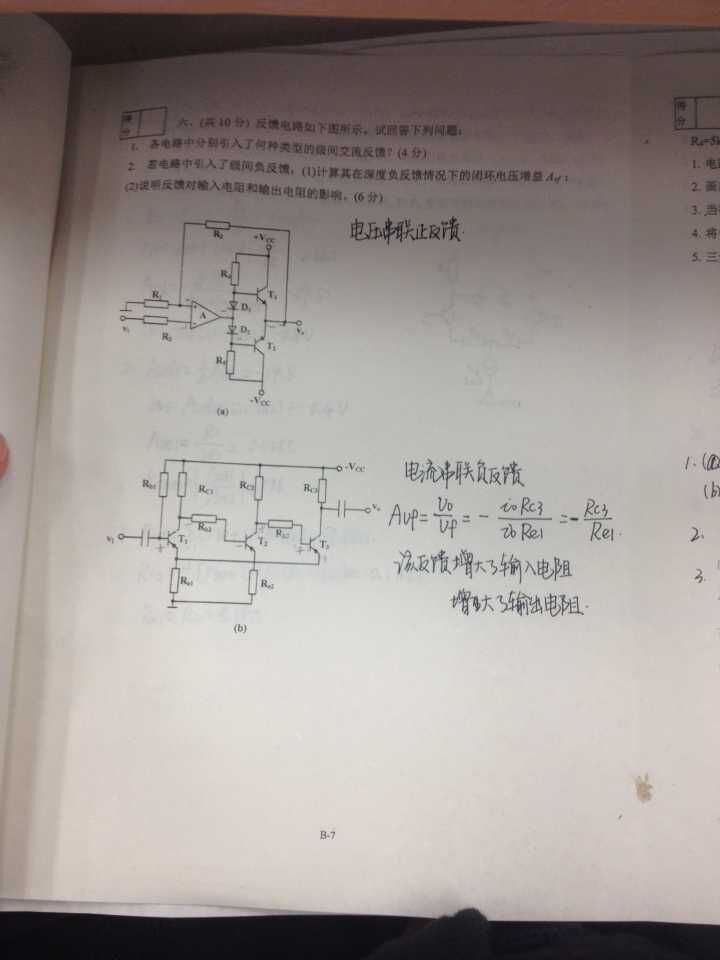 得
分
六、(共 10 分) 反馈电路如下图所示。试回答下列问题:
1. 各电路中分别引入了何种类型的级间交流反馈? (4 分)
2. 若电路中引入了级间负反馈, (1)计算其在深度负反馈情况下的闭环电压增益 Avf;
(2)说明反馈对输入电阻和输出电阻的影响。(6 分)
电压串联正反馈
+VCC
T1
D1
R1
A
vi
R2
D2
vo
-VCC
(a)
电流串联负反馈
-VCC
Rb1
RC1
RC2
RC3
Rb2
vo
vi
T1
T2
T3
Re1
Re2
(b)
AUf = Uo/Uf = - ioRC3/ioRe1 = - RC3/Re1
该反馈增大了输入电阻
增大了输出电阻.
B-7
得
分
1. 电
2. 画
3. 当
4. 将
5. 三
1. (a)
(b)
2.
3.